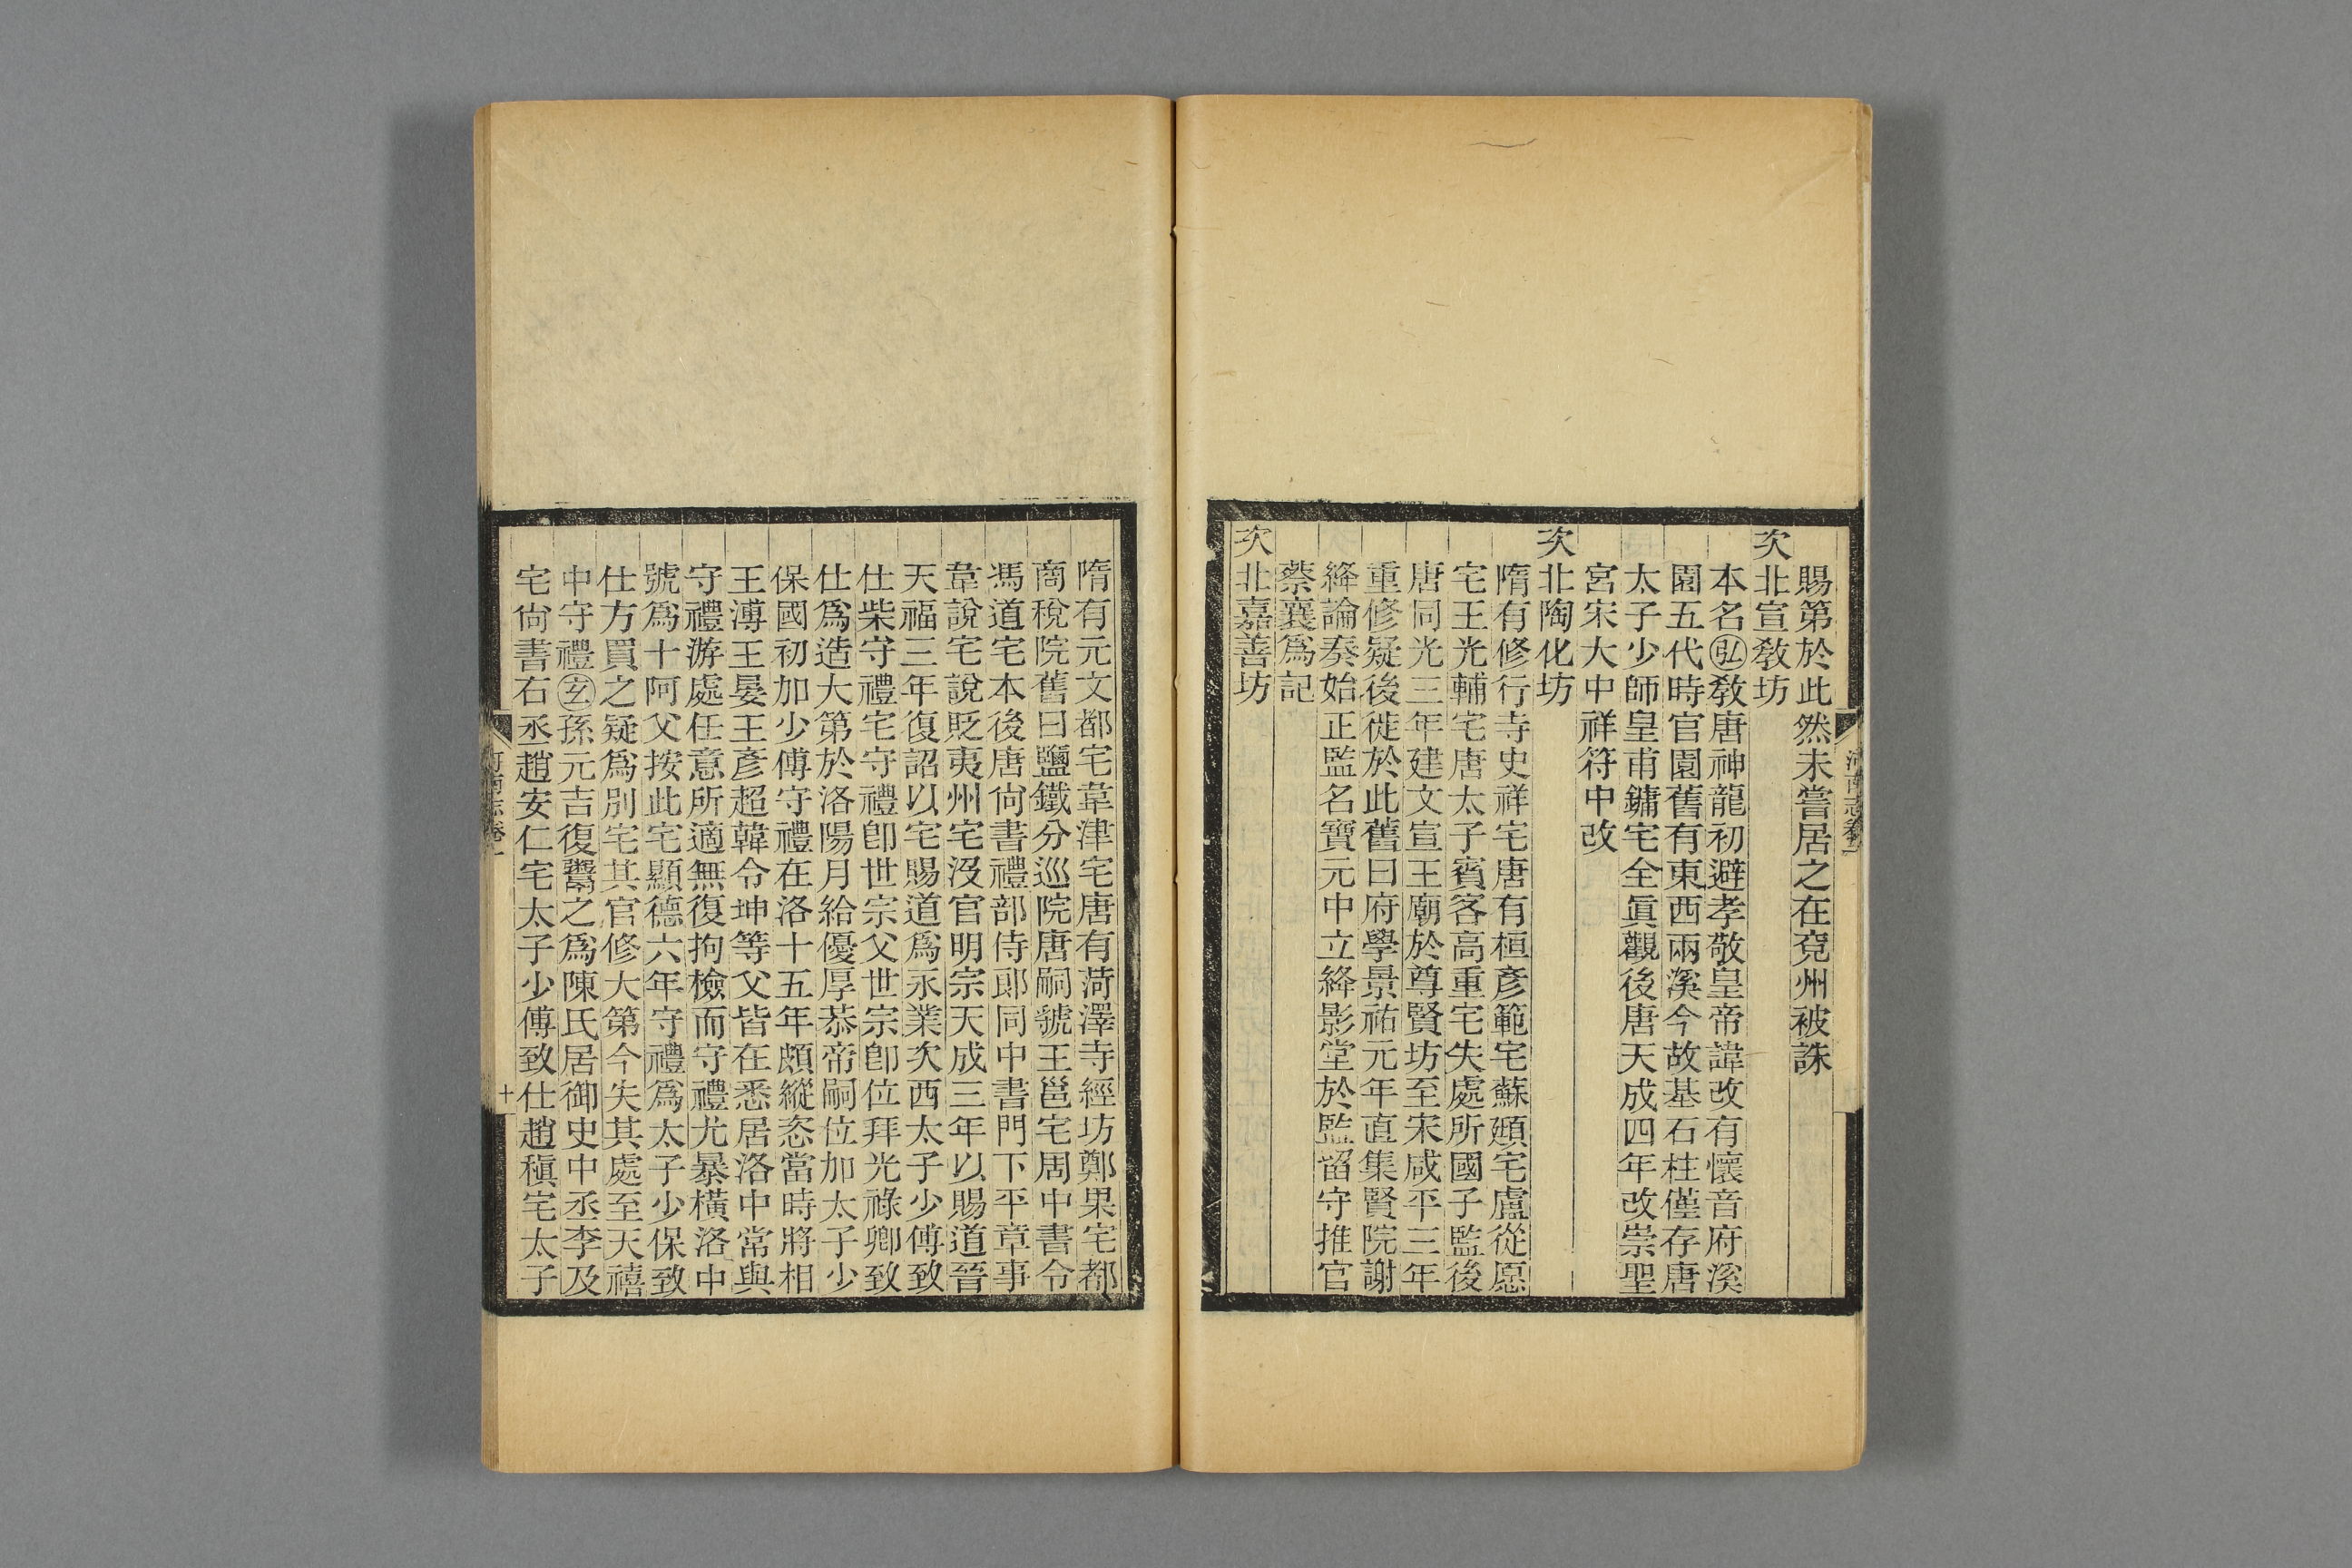 賜第於此然未嘗居之在兗州被誅
次北宣敎坊
本名弘敎唐神龍初避孝敬皇帝諱改有懷音府溪
園五代時官園舊有東西兩溪今故基石柱僅存唐
太子少師皇甫鏞宅全眞觀後唐天成四年改崇聖
宮宋大中祥符中改
次北陶化坊
隋有修行寺史祥宅唐有桓彥範宅蘇頲宅盧從愿
宅王光輔宅唐太子賓客高重宅失處所國子監後
唐同光三年建文宣王廟於尊賢坊至宋咸平三年
重修疑後徙於此舊曰府學景祐元年直集賢院謝
絳論奏始正監名寶元中立絳影堂於監留守推官
蔡襄爲記
次北嘉善坊
河南志卷一
隋有元文都宅韋津宅唐有菏澤寺經坊鄭果宅都
商稅院舊曰鹽鐵分巡院唐嗣虢王邕宅周中書令
馮道宅本後唐尙書禮部侍郎同中書門下平章事
韋說宅說貶夷州宅沒官明宗天成三年以賜道晉
天福三年復詔以宅賜道爲永業次西太子少傅致
仕柴守禮宅守禮卽世宗父世宗卽位拜光祿卿致
仕爲造大第於洛陽月給優厚恭帝嗣位加太子少
保國初加少傅守禮在洛十五年頗縱恣當時將相
王溥王晏王彥超韓令坤等父皆在悉居洛中常與
守禮游處任意所適無復拘檢而守禮尤暴橫洛中
號爲十阿父按此宅顯德六年守禮爲太子少保致
仕方買之疑爲別宅其官修大第今失其處至天禧
中守禮玄孫元吉復鬻之爲陳氏居御史中丞李及
宅尙書右丞趙安仁宅太子少傅致仕趙稹宅太子
河南志卷一
十